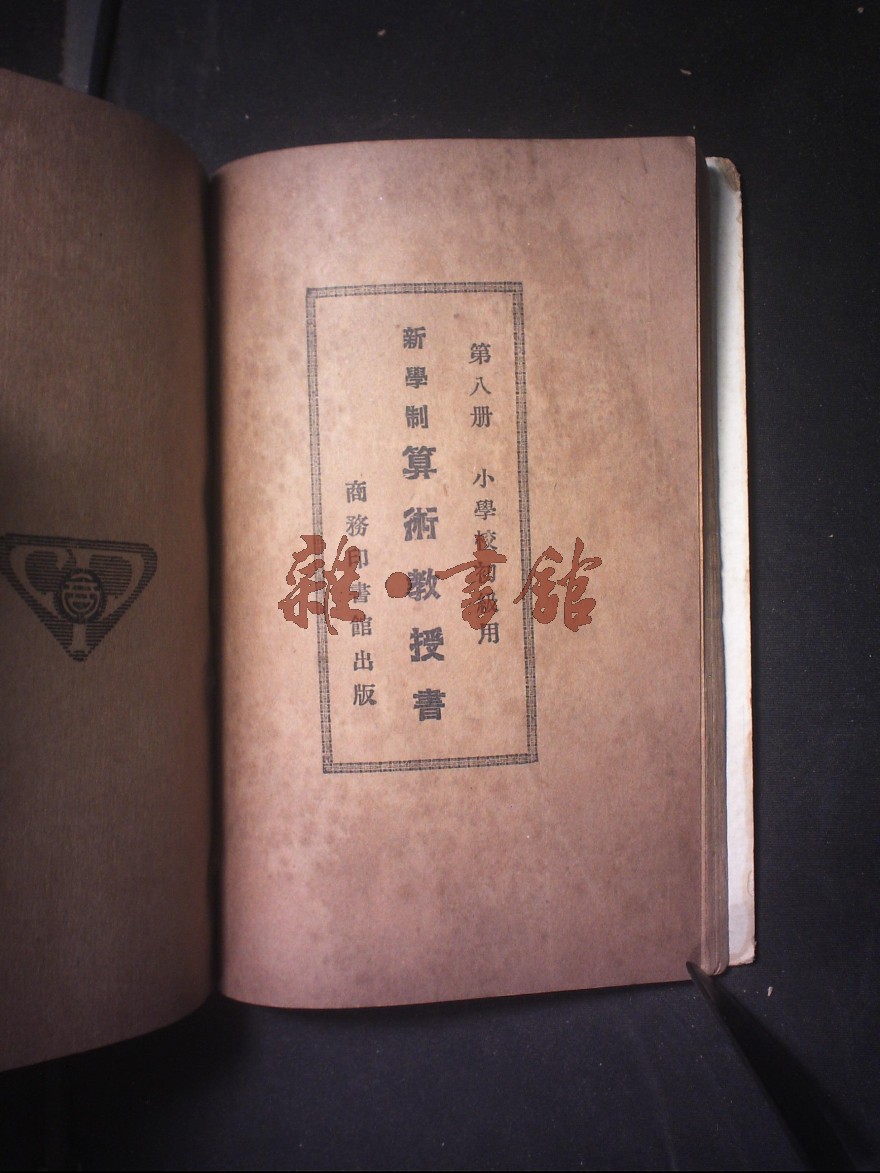 第八册 小學校初級用
新學制算術教授書
商務印書館出版
雜·書館